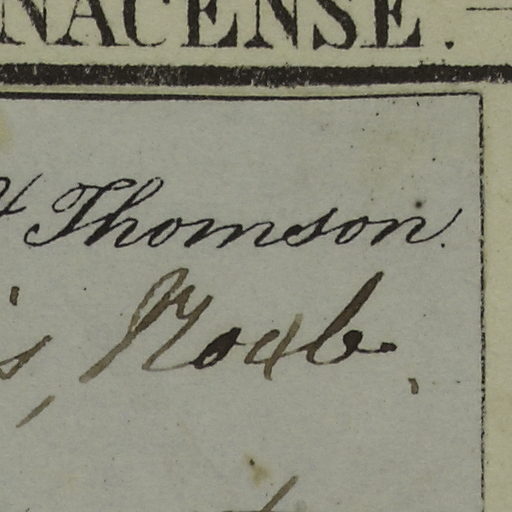 NACENSE.
& Thomson.
s, Roxb.